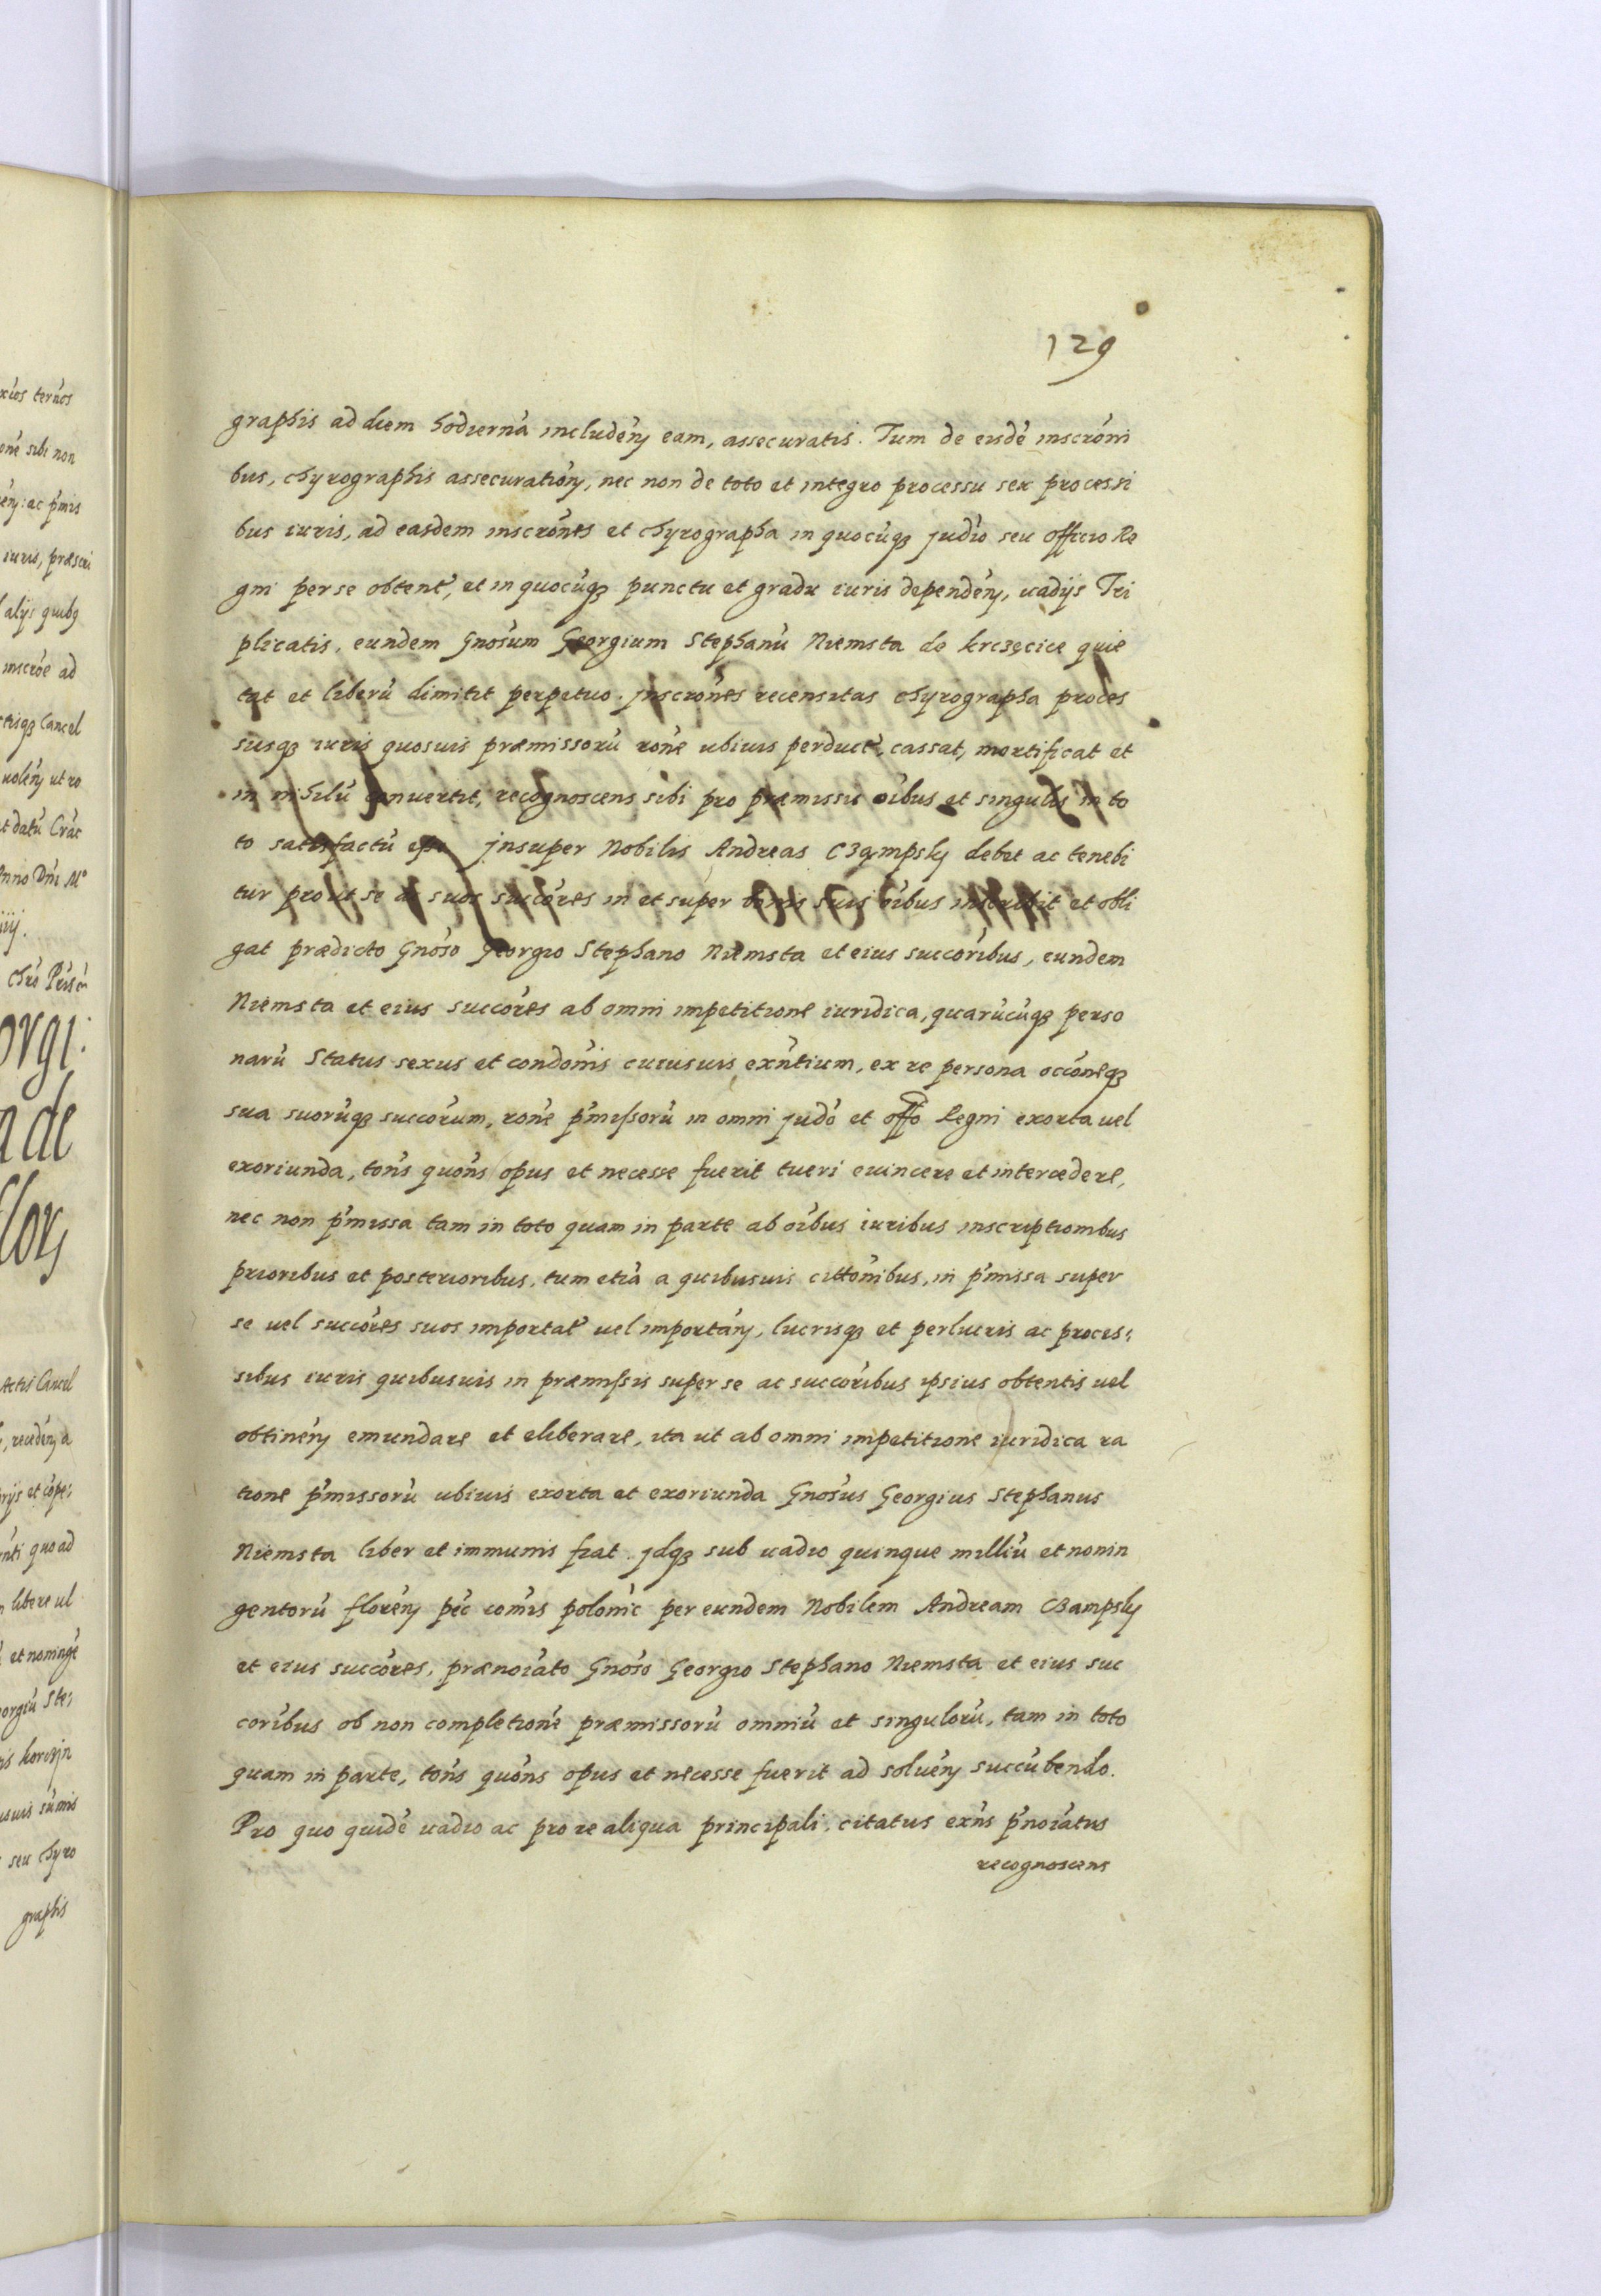 129
graphis ad diem hodierná includéń eam, assecuratis. Tum de eisdé inscróni
bus, chyrographis assecuratióń, nec non de toto et integro processu seu processi
bus iuris, ad easdem inscrónes et chyrographa in quocúqȝ judió seu officio Re
gni per se obtent', et in quocúqȝ punctu et gradu iuris dependéń, vadijs Tri
plicatis, eundem Gnósum Georgium Stephanú Niemsta de krczęcice quie
tat et liberú dimitit perpetuo. jnscrónes recensitas chyrographa proces
susqȝ iuris quosuis præmissorú róne ubiuis perduct', cassat, mortificat et
in nihilú conuertit, recognoscens sibi pro præmissis óibus et singulis in to
to satisfactú esse jnsuper Nobilis Andreas Czampsky debet ac tenebi
tur prout se ac suos succóres in et super bonis suis óibus inscribit et obli
gat prædicto Gnóso Georgio Stephano Niemsta et eius succóribus, eundem
Niemsta et eius succóres ab omni impetitione iuridica, quarúcúqȝ perso
narú status sexus et condónis cuiusuis exńtium, ex re persona occóneqȝ
sua suorúqȝ succórum, róne p'missorú in omni judó et offó Regni exorta vel
exoriunda, tóns quóns opus et necesse fuerit tueri euincere et intercedere,
nec non p'missa tam in toto quam in parte ab óibus iuribus inscriptionibus
prioribus et posterioribus, tum etiá a quibusuis cittónibus, in p'missa super
se vel succóres suos importat' vel importáń, lucrisqȝ et perlucris ac proces:
sibus iuris quibusuis in præmissis super se ac succóribus ipsius obtentis vel
obtinéń emundare et eliberare, ita ut ab omni impetitione iuridica ra
tione p'missorú ubiuis exorta et exoriunda Gnósus Georgius Stephanus
Niemsta liber et immunis fiat. jdqȝ sub vadio quinque milliú et nonin
gentorú floréń péc cómis polonić per eundem Nobilem Andream Czampsky
et eius succóres, prænoíato Gnóso Georgio Stephano Niemsta et eius suc
córibus ob non completioné præmissorú omniú et singulorú, tam in toto
quam in parte, tóns quóns opus et necesse fuerit ad soluéń succúbendo.
Pro quo quidé vadio ac pro re aliqua principali, citatus exńs p'noíatus
recognoscens